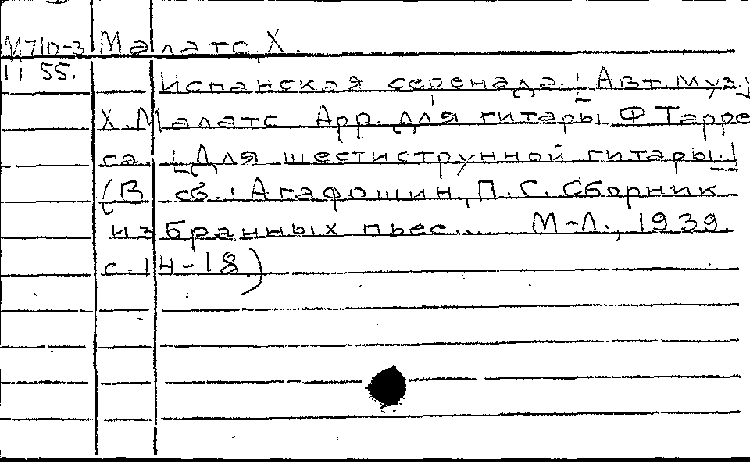 М710-3 Малатс, Х.
11 55.
Испанская серенада. [Авт. муз.:
Х. Малатс. Арр. для гитары Ф. Тарре
га. [Для шестиструнной гитары.]
(В сб.: Агафошин, П. С. Сборник
избранных пьес... М-Л., 1939.
с. 14-18)